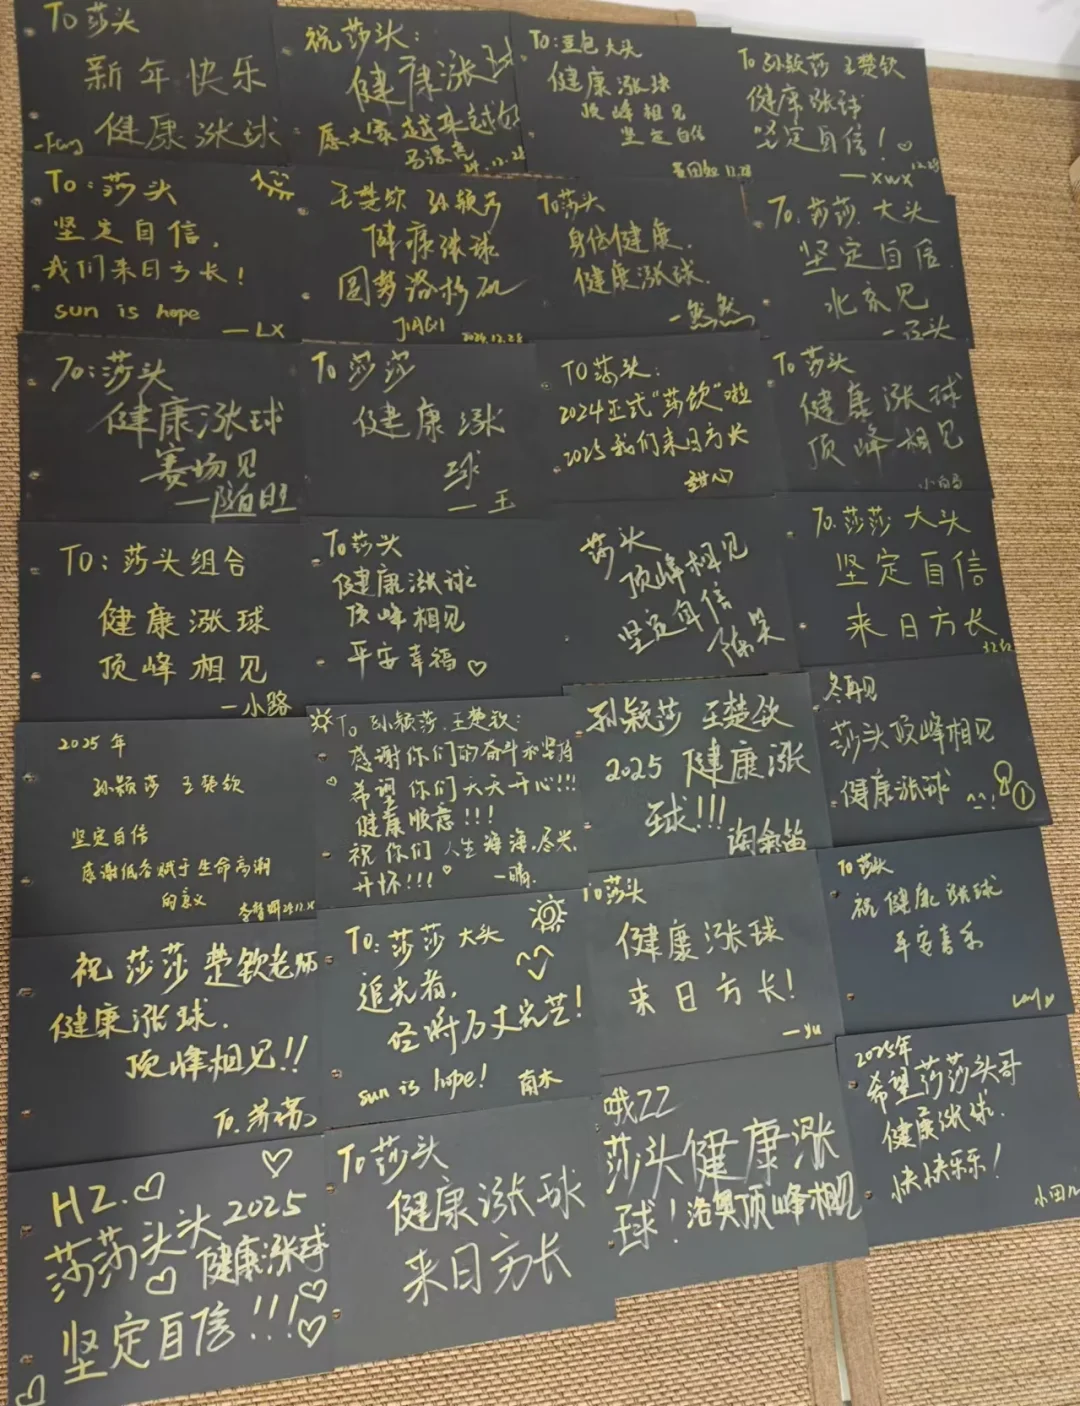 To 莎头
新年快乐
健康涨球
祝莎头：
健康涨球
愿大家越来越好
To：豆包大头
健康涨球
顶峰相见
坚定自信
To 孙颖莎 王楚钦
健康涨球
坚定自信！
12.28
—xwx
To：莎头
坚定自信，
我们来日方长！
sun is hope
—LX
王楚钦 孙颖莎
健康涨球
圆梦洛杉矶
JIAQI
2024.12.28
To莎头
身体健康，
健康涨球
—然然
To：莎莎 大头
坚定自信
北京见
To：莎头
健康涨球
赛场见
To 莎莎
健康涨
球
—王
TO莎头：
2024正式“莎钦”啦
2025我们来日方长
甜心
To 莎头
健康涨球
顶峰相见
TO：莎头组合
健康涨球
顶峰相见
—小路
To莎头
健康涨球
顶峰相见
平安幸福♡
莎头
顶峰相见
坚定自信
陈昊
To.莎莎 大头
坚定自信
来日方长
2025年
孙颖莎 王楚钦
坚定自信
感谢低谷赋于生命高潮
的意义
To 孙颖莎、王楚钦：
感谢你们的奋斗和坚持
希望你们天天开心!!!
健康顺意!!!
祝你们人生海海，尽兴
开怀!!!
—晴.
孙颖莎 王楚钦
2025 健康涨
球!!!
冬再见
莎头顶峰相见
健康涨球
祝莎莎 楚钦老师
健康涨球，
顶峰相见!!
To：莎莎 大头
追光者，
终将万丈光芒！
sun is hope!
南木
To莎头
健康涨球
来日方长！
—yu
To莎头
祝健康涨球
平安喜乐
HZ.♡
莎莎头头2025
健康涨球
坚定自信!!!
To莎头
健康涨球
来日方长
哦ZZ
莎头健康涨
球！洛奥顶峰相见
2025年
希望莎莎头哥
健康涨球，
快快乐乐！